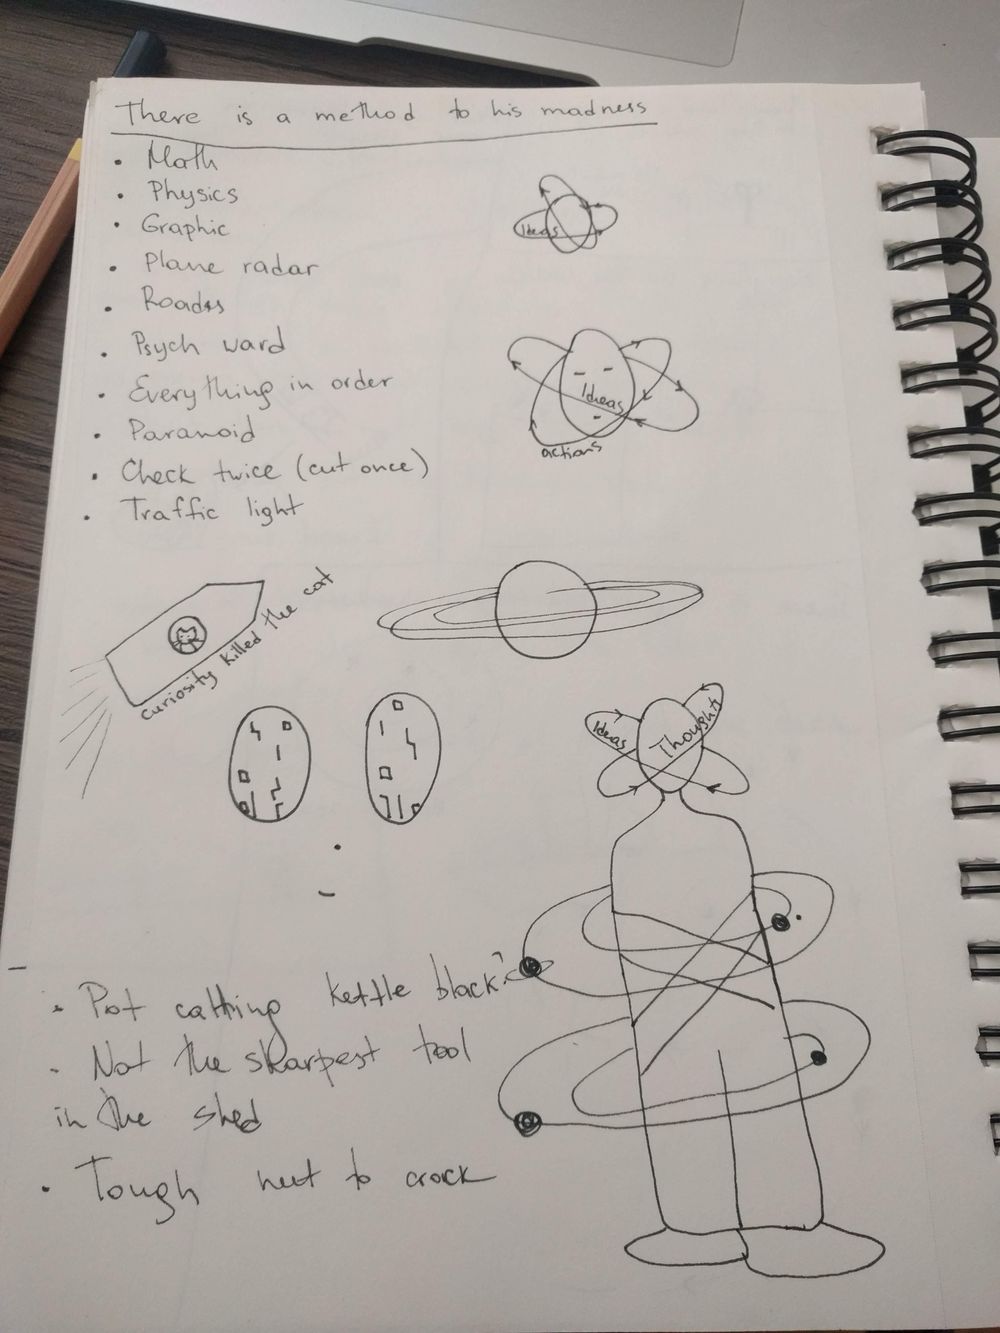 There is a method to his madness
• Math
• Physics
• Graphic
• Plane radar
• Roads
• Psych ward
• Everything in order
• Paranoid
• Check twice (cut once)
• Traffic light
Ideas
Ideas
actions
Curiosity killed the cat
Ideas
Thoughts
• Pot calling kettle black?
• Not the sharpest tool
in the shed
• Tough nut to crack